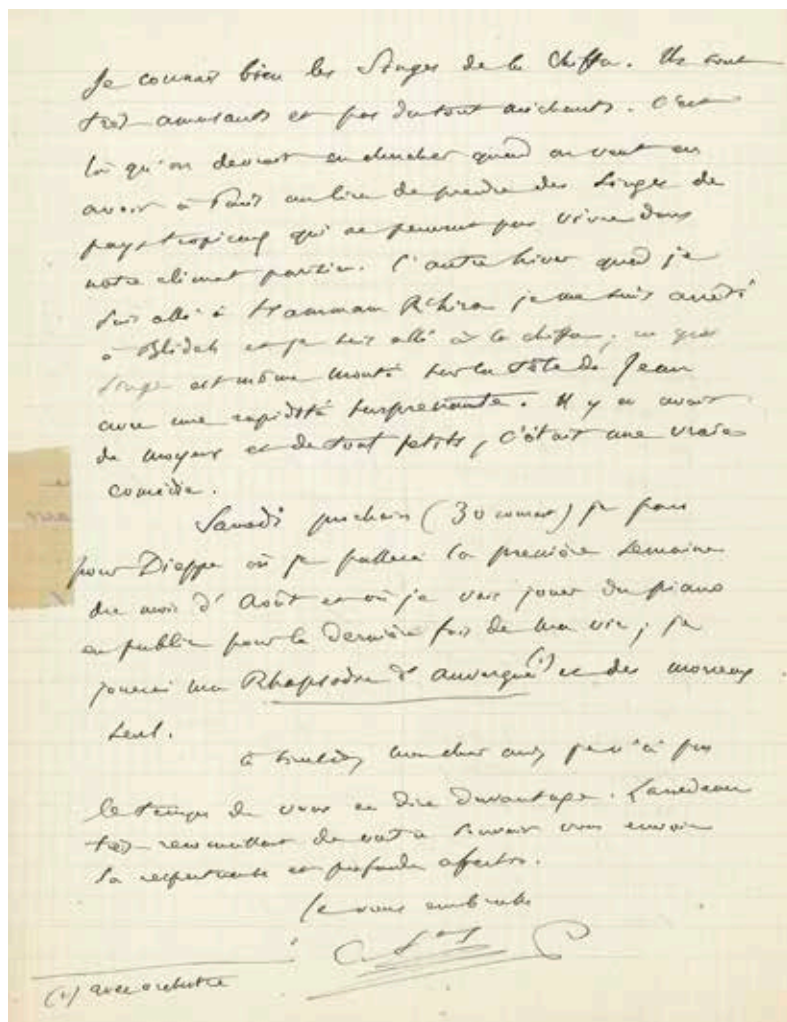 Je connais bien les Singes de la Chiffa. Ils sont
très amusants et pas du tout méchants. C'est
là qu'on devrait en chercher quand on veut en
avoir à Paris au lieu de prendre des Singes de
pays tropicaux qui ne peuvent pas vivre dans
notre climat parisien. L'autre hiver quand je
suis allé à Hammam R'hira je me suis arrêté
à Blidah et je suis allé à la Chiffa; un gros
singe est même monté sur la tête de Jean
avec une rapidité surprenante. Il y en avait
de moyens et de tout petits, c'était une vraie
comédie.
Samedi prochain (30 courant) je pars
pour Dieppe où je passerai la première semaine
du mois d'Août et où je vais jouer du piano
en public pour la dernière fois de ma vie; je
jouerai ma Rhapsodie d'Auvergne (1) et des morceaux
seul.
à bientôt mon cher ami, je n'ai pas
le temps de vous en dire davantage.
très reconnaissant de votre souvenir vous envoie
sa respectueuse et profonde affection.
Je vous embrasse
C. S
(1) avec orchestre